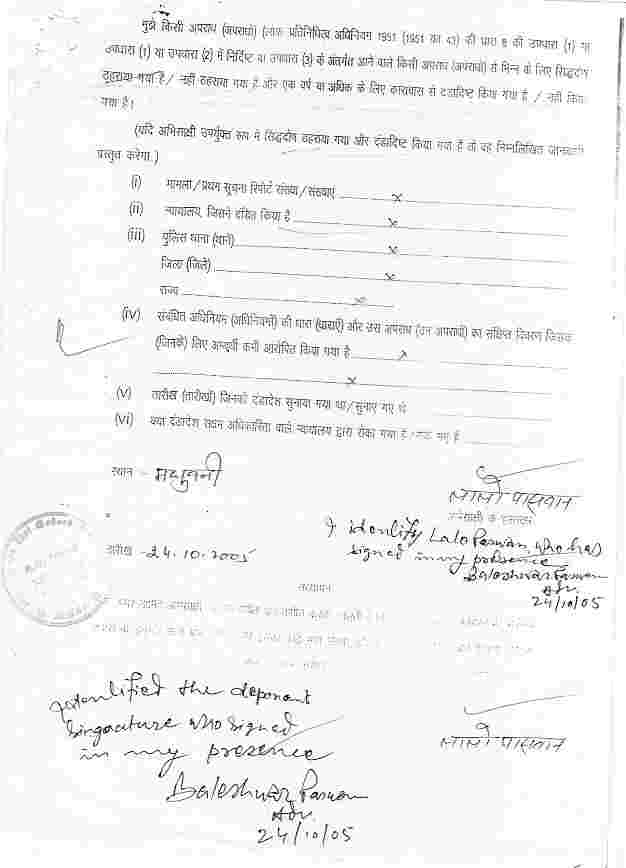 मुझे किसी अपराध (अपराधों) (लोक प्रतिनिधित्व अधिनियम 1951 (1951 का 43) की धारा 8 की उपधारा (1) या
उपधारा (1) या उपधारा (2) में निर्दिष्ट या उपधारा (3) के अंतर्गत आने वाले किसी अपराध (अपराधों) से भिन्न के लिए सिद्धदोष
ठहराया गया है / नहीं ठहराया गया है और एक वर्ष या अधिक के लिए कारावास से दंडादिष्ट किया गया है / नहीं किया
गया है।
(यदि अभिसाक्षी उपर्युक्त रूप में सिद्धदोष ठहराया गया और दंडादिष्ट किया गया है तो वह निम्नलिखित जानकारी
प्रस्तुत करेगा.)
(i) मामला/प्रथम सूचना रिपोर्ट संख्या/संख्याएं x
(ii) न्यायालय, जिसने दंडित किया है x
(iii) पुलिस थाना (थाने) x
जिला (जिले) x
राज्य x
(iv) संबंधित अधिनियम (अधिनियमों) की धारा (धाराएँ) और उस अपराध (उन अपराधों) का संक्षिप्त विवरण जिसके
(जिनके) लिए अभ्यर्थी को आरोपित किया गया है x
x
(v) तारीख (तारीखों) जिनको दंडादेश सुनाया गया था/सुनाए गए थे
(vi) क्या दंडादेश सक्षम अधिकारिता वाले न्यायालय द्वारा रोका गया है
स्थान - मधुबनी
लालो पासवान
अभिसाक्षी के हस्ताक्षर
I identify Lalo Paswan, who has
signed in my presence
Baleshwar Paswan
Adv.
24/10/05
तारीख - 24.10.2005
सत्यापन
Identified the deponant
Singnature who signed
in my presence
Baleshwar Paswan
Adv.
24/10/05
लालो पासवान